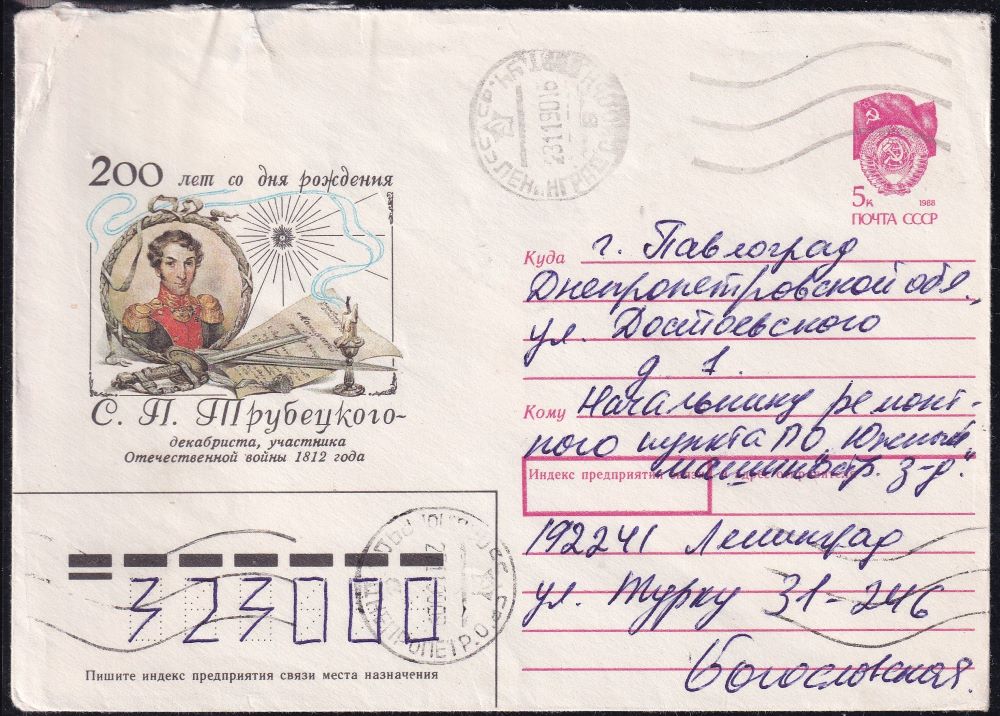 200 лет со дня рождения
С. П. Трубецкого-
декабриста, участника
Отечественной войны 1812 года
ЛЕНИНГРАД
23 11 90 16
5к 1988
ПОЧТА СССР
Куда г. Павлоград
Днепропетровской обл.,
ул. Достоевского
д. 1.
Кому Начальнику ремонт-
ного пункта ПО „Южный
машиностр. з-д".
Индекс предприятия связи
192241 Ленинград
ул. Турку 31-246
Богословская.
323000
Пишите индекс предприятия связи места назначения